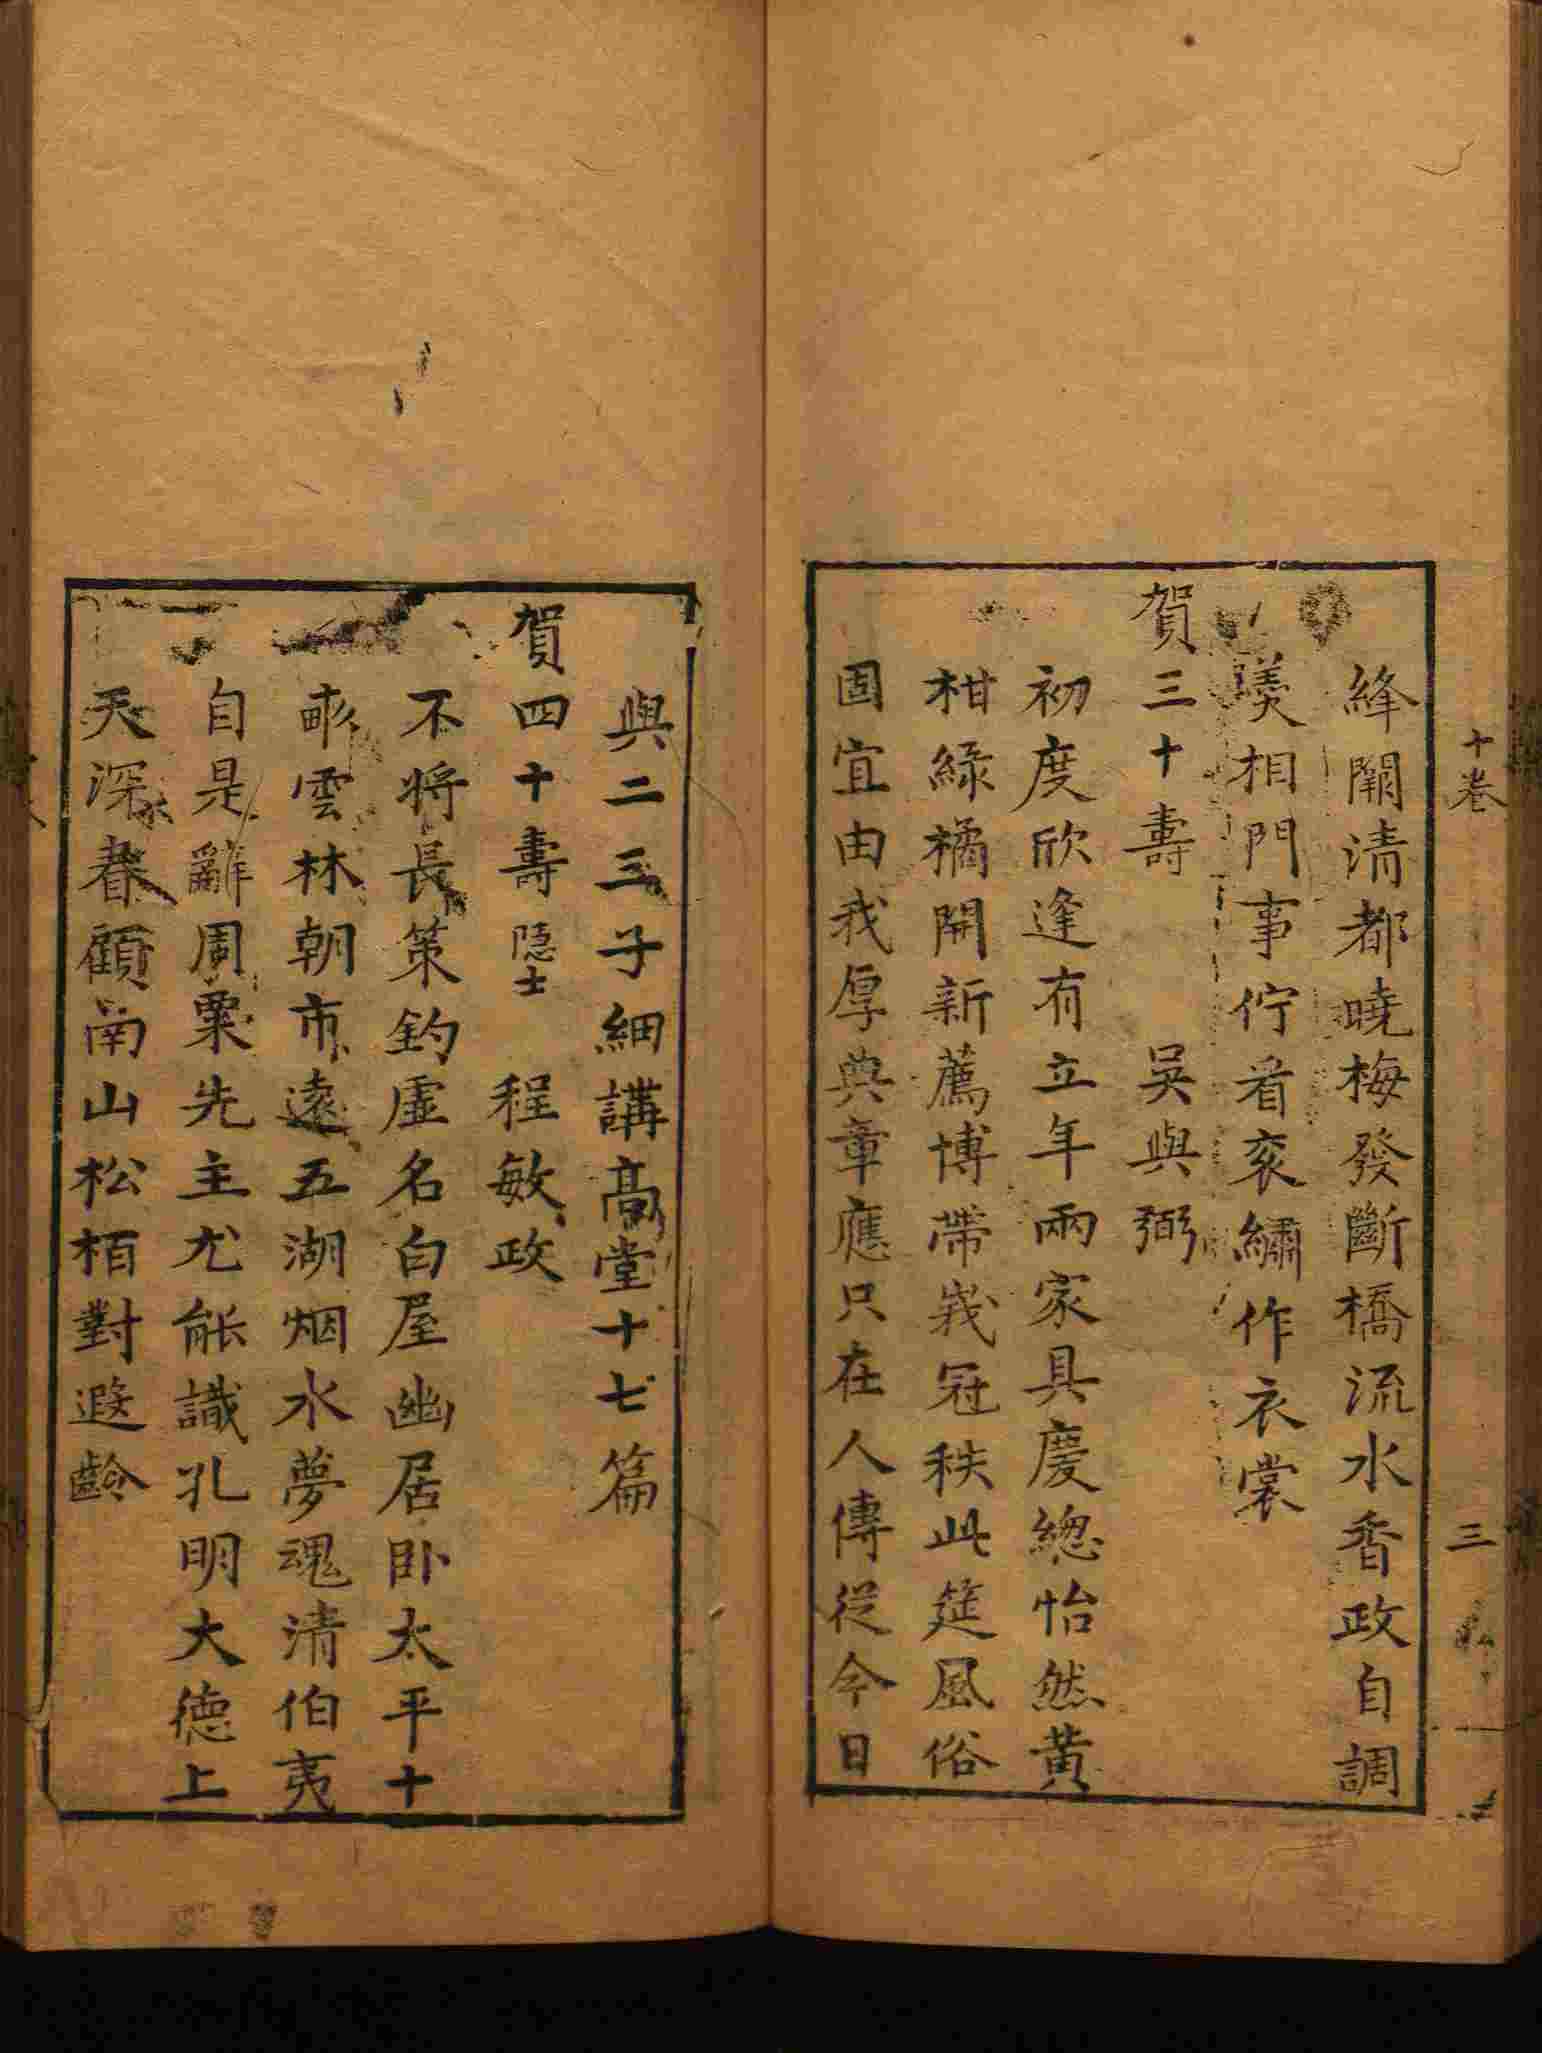 十卷
三
絳闕清都曉梅發斷橋流水香政自調
羮相門事佇看衮繡作衣裳
賀三十壽 吳與弼
初度欣逢有立年兩家具慶總怡然黃
柑綠橘開新薦博帶峩冠秩此筵風俗
固宜由我厚典章應只在人傳從今日
與二三子細講髙堂十七篇
賀四十壽隱士 程敏政
不將長策釣虛名白屋幽居卧太平十
畝雲林朝市遠五湖烟水夢魂清伯夷
自是辭周粟先主尤能識孔明大德上
天深眷顧南山松栢對遐齡